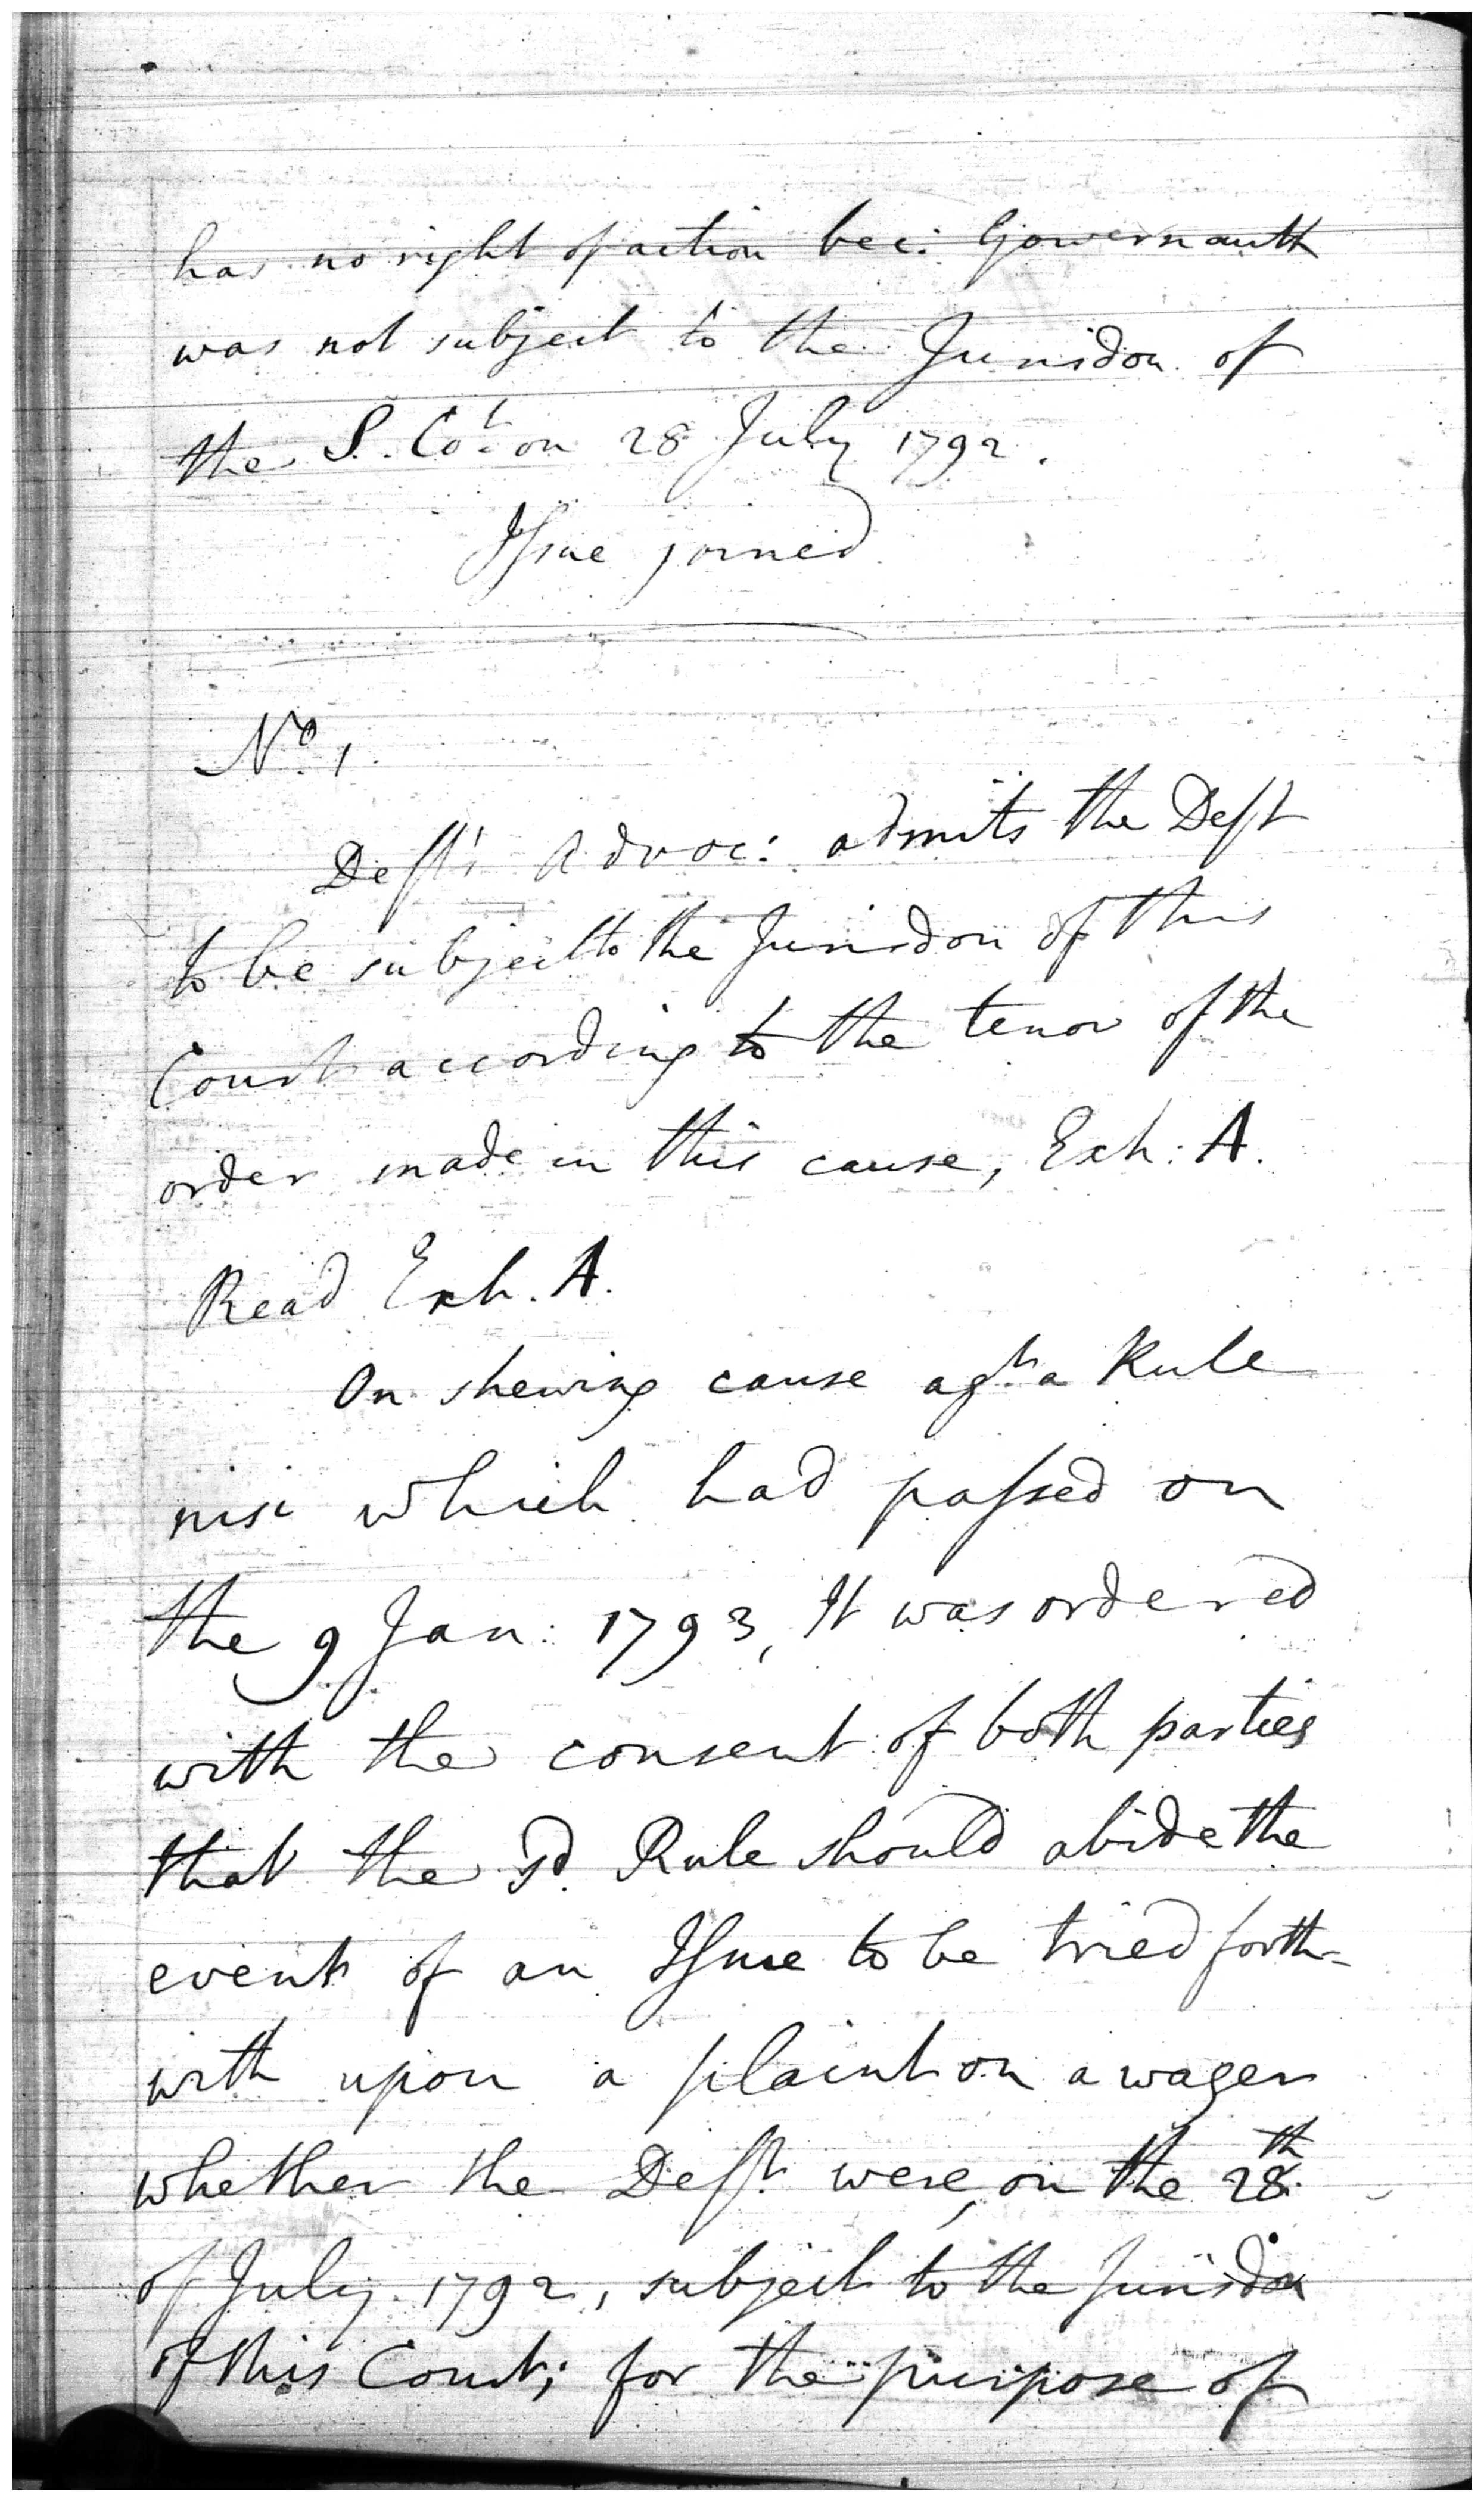 has no right of action bec: Gowernauth
was not subject to the Jurisdon. of
the S. Cot. on 28 July 1792.
Issue joined
No. 1
Deft's Advoc: admits the Deft
to be subject to the Jurisdon of this
Court according to the tenor of the
order made in this cause, Exh: A.
Read Exh. A.
On shewing cause agt. a Rule
nisi which had passed on
the 9 Jan: 1793, It was ordered
with the consent of both parties
that the sd. Rule should abide the
event of an Issue to be tried forth-
with upon a plaint on a wager
whether the Deft. were, on the 28th.
of July 1792, subject to the Jurisdon
of this Court; for the purpose of